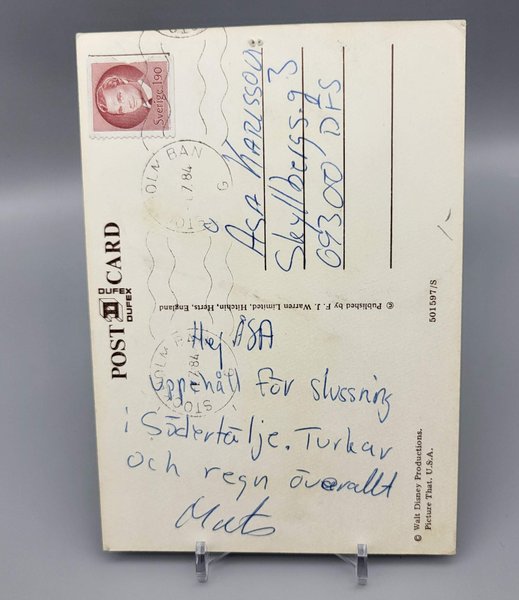 Sverige 190
BAN
7.84
POST CARD
DUFEX
DUFEX
ÅSA KARLSSON
Skyllbergsg 3
09300 DFS
© Published by F. J. Warren Limited, Hitchin, Herts, England
501597/S
Hej ÅSA
uppehåll för slussning
i Södertälje. Turkar
och regn överallt
Mats
© Walt Disney Productions.
Picture That, U.S.A.
1-